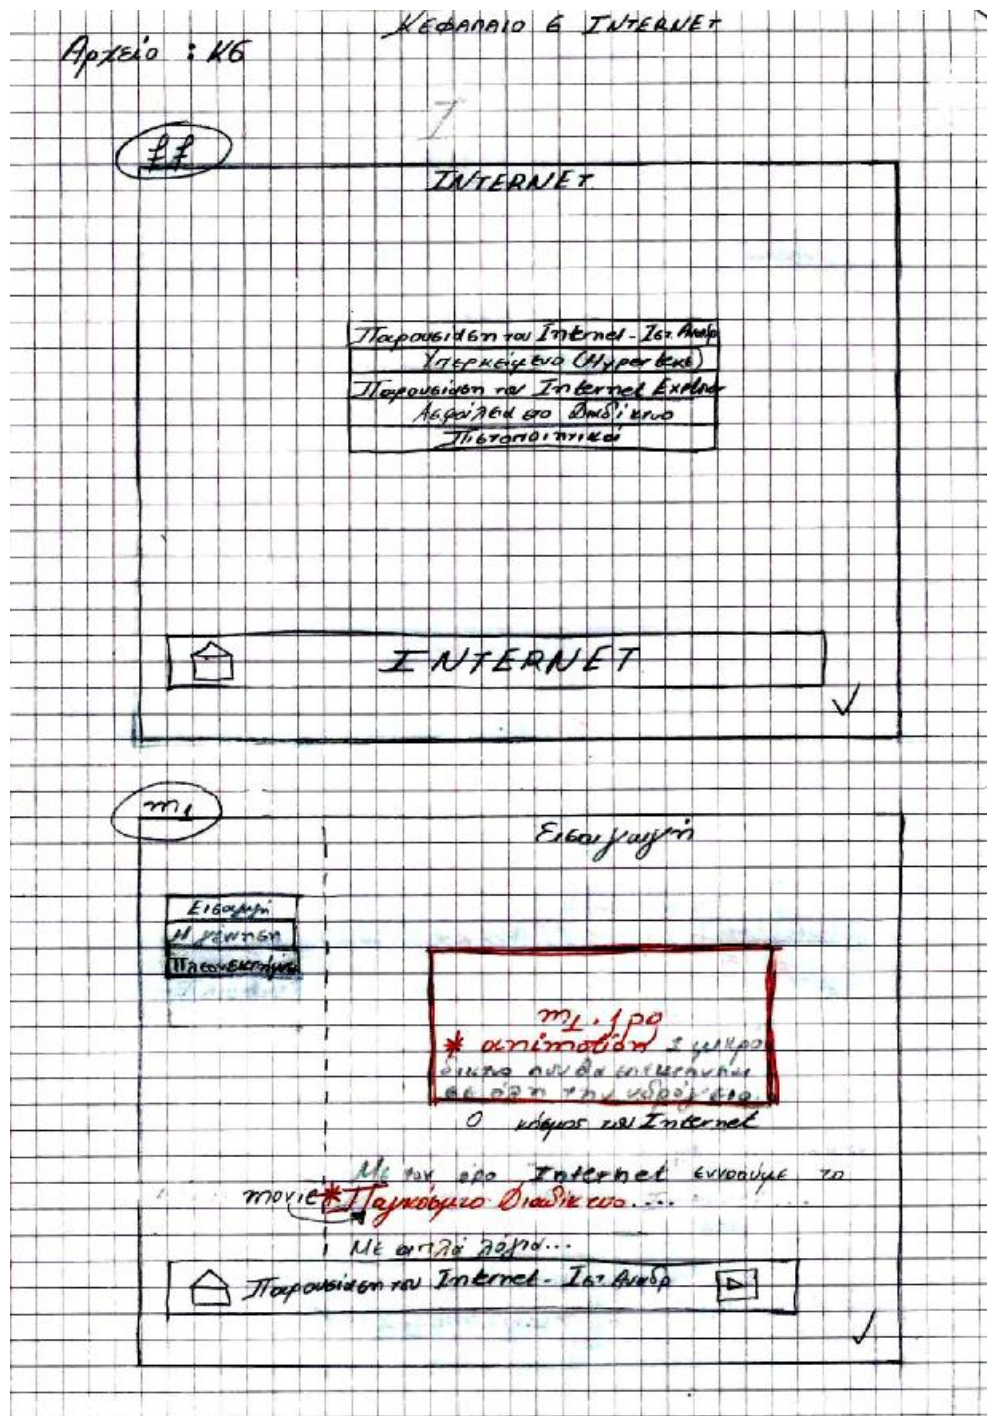 ΚΕΦΑΛΑΙΟ 6 INTERNET
Αρχείο : Κ6
INTERNET
Παρουσίαση του Internet - Ιστ. Αναδρ
Υπερκείμενο (Hypertext)
Παρουσίαση του Internet Explorer
Ασφάλεια στο Διαδίκτυο
Πιστοποιητικά
INTERNET
m1
Εισαγωγή
Εισαγωγή
Η γέννηση
m1.fpo
* animation 1 μικρό
δίκτυο που θα επεκτείνεται
σε όλη την υδρόγειο
Ο κόσμος του Internet
Με τον όρο Internet εννοούμε το
movie * Παγκόσμιο Διαδίκτυο....
Με απλά λόγια...
Παρουσίαση του Internet - Ιστ. Αναδρ